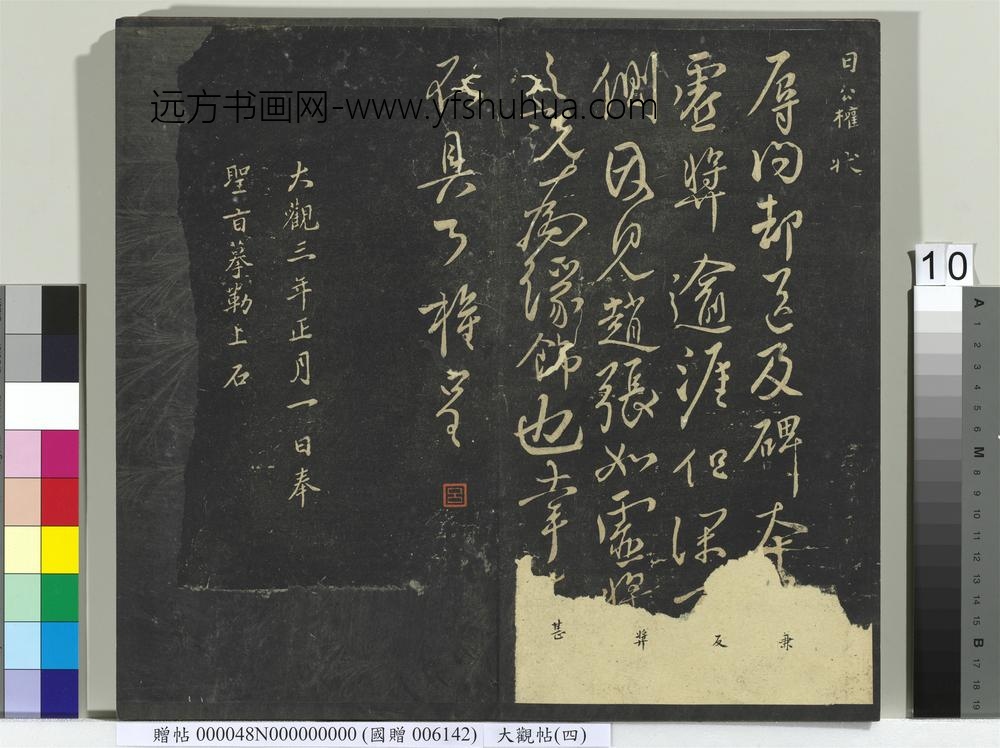 日公權狀
辱問却送及碑本
兼
虛獎逾涯但深
反
側因見趙張如虛獎
獎
為緣飾也幸
甚
具權呈
大觀三年正月一日奉
聖旨摹勒上石
远方书画网-www.yfshuhua.com
10
A 1 2 3 4 5 6 M 8 9 10 11 12 13 14 15 B 17 18 19
贈帖 000048N000000000 (國贈 006142) 大觀帖(四)